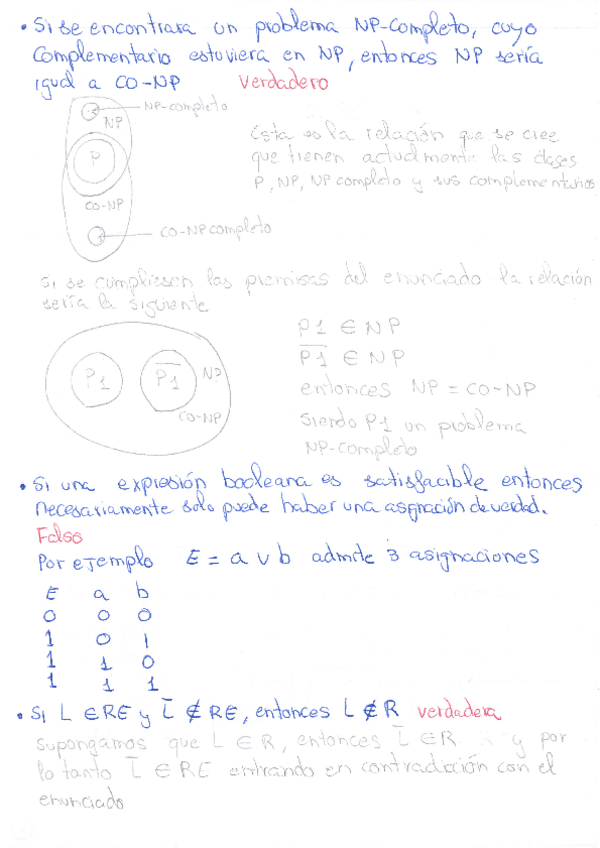 • Si se encontrara un problema NP-Completo, cuyo
Complementario estuviera en NP, entonces NP sería
igual a CO-NP Verdadero
NP-completo
NP
P
CO-NP
CO-NP completo
Esta es la relación que se cree
que tienen actualmente las clases
P, NP, NP completo y sus complementarios
Si se cumpliesen las premisas del enunciado la relación
sería la siguiente
P1
P̅1̅
NP
CO-NP
P1 ∈ NP
P̅1̅ ∈ NP
entonces NP = CO-NP
Siendo P1 un problema
NP-completo
• Si una expresión booleana es satisfacible entonces
necesariamente solo puede haber una asignación de verdad.
Falso
Por ejemplo E = a v b admite 3 asignaciones
E a b
0 0 0
1 0 1
1 1 0
1 1 1
• Si L ∈ RE y L̅ ∉ RE, entonces L ∉ R verdadera
Supongamos que L ∈ R, entonces L̅ ∈ R y por
lo tanto L̅ ∈ RE entrando en contradicción con el
enunciado